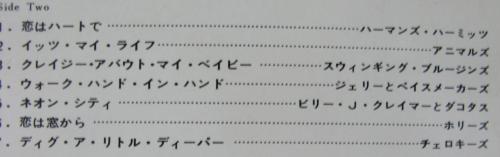 Side Two
1. 恋はハートで ハーマンズ・ハーミッツ
2. イッツ・マイ・ライフ アニマルズ
3. クレイジー・アバウト・マイ・ベイビー スウィンギング・ブルージンズ
4. ウォーク・ハンド・イン・ハンド ジェリーとペイスメーカーズ
5. ネオン・シティ ビリー・J・クレイマーとダコタス
6. 恋は窓から ホリーズ
7. ディグ・ア・リトル・ディーパー チェロキーズ